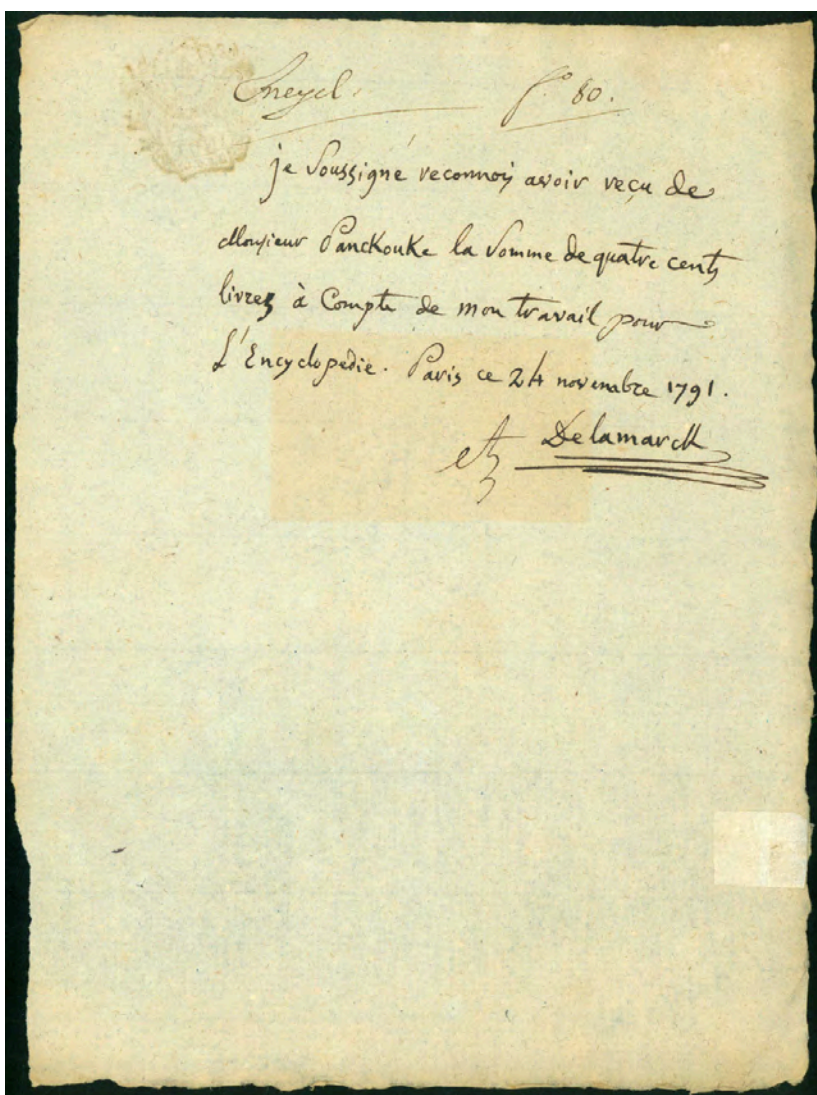 Encycl. fº 80.
je soussigné reconnois avoir reçu de
Monsieur Panckouke la somme de quatre cents
livres à Compte de mon travail pour
L'Encyclopedie. Paris ce 24 novembre 1791.
Delamarck